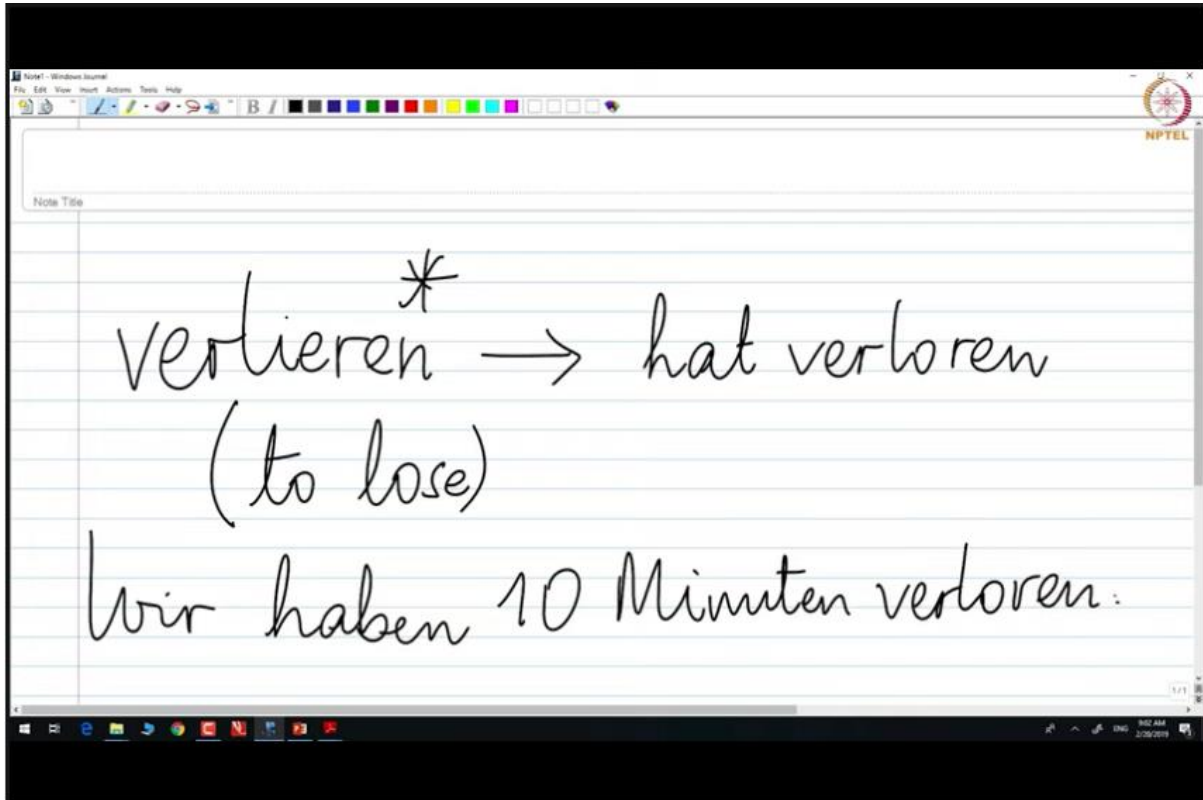 Note1 - Windows Journal
File Edit View Insert Actions Tools Help
B I
NPTEL
Note Title
verlieren* → hat verloren
(to lose)
Wir haben 10 Minuten verloren.
1/1
ENG
9:02 AM
2/20/2019